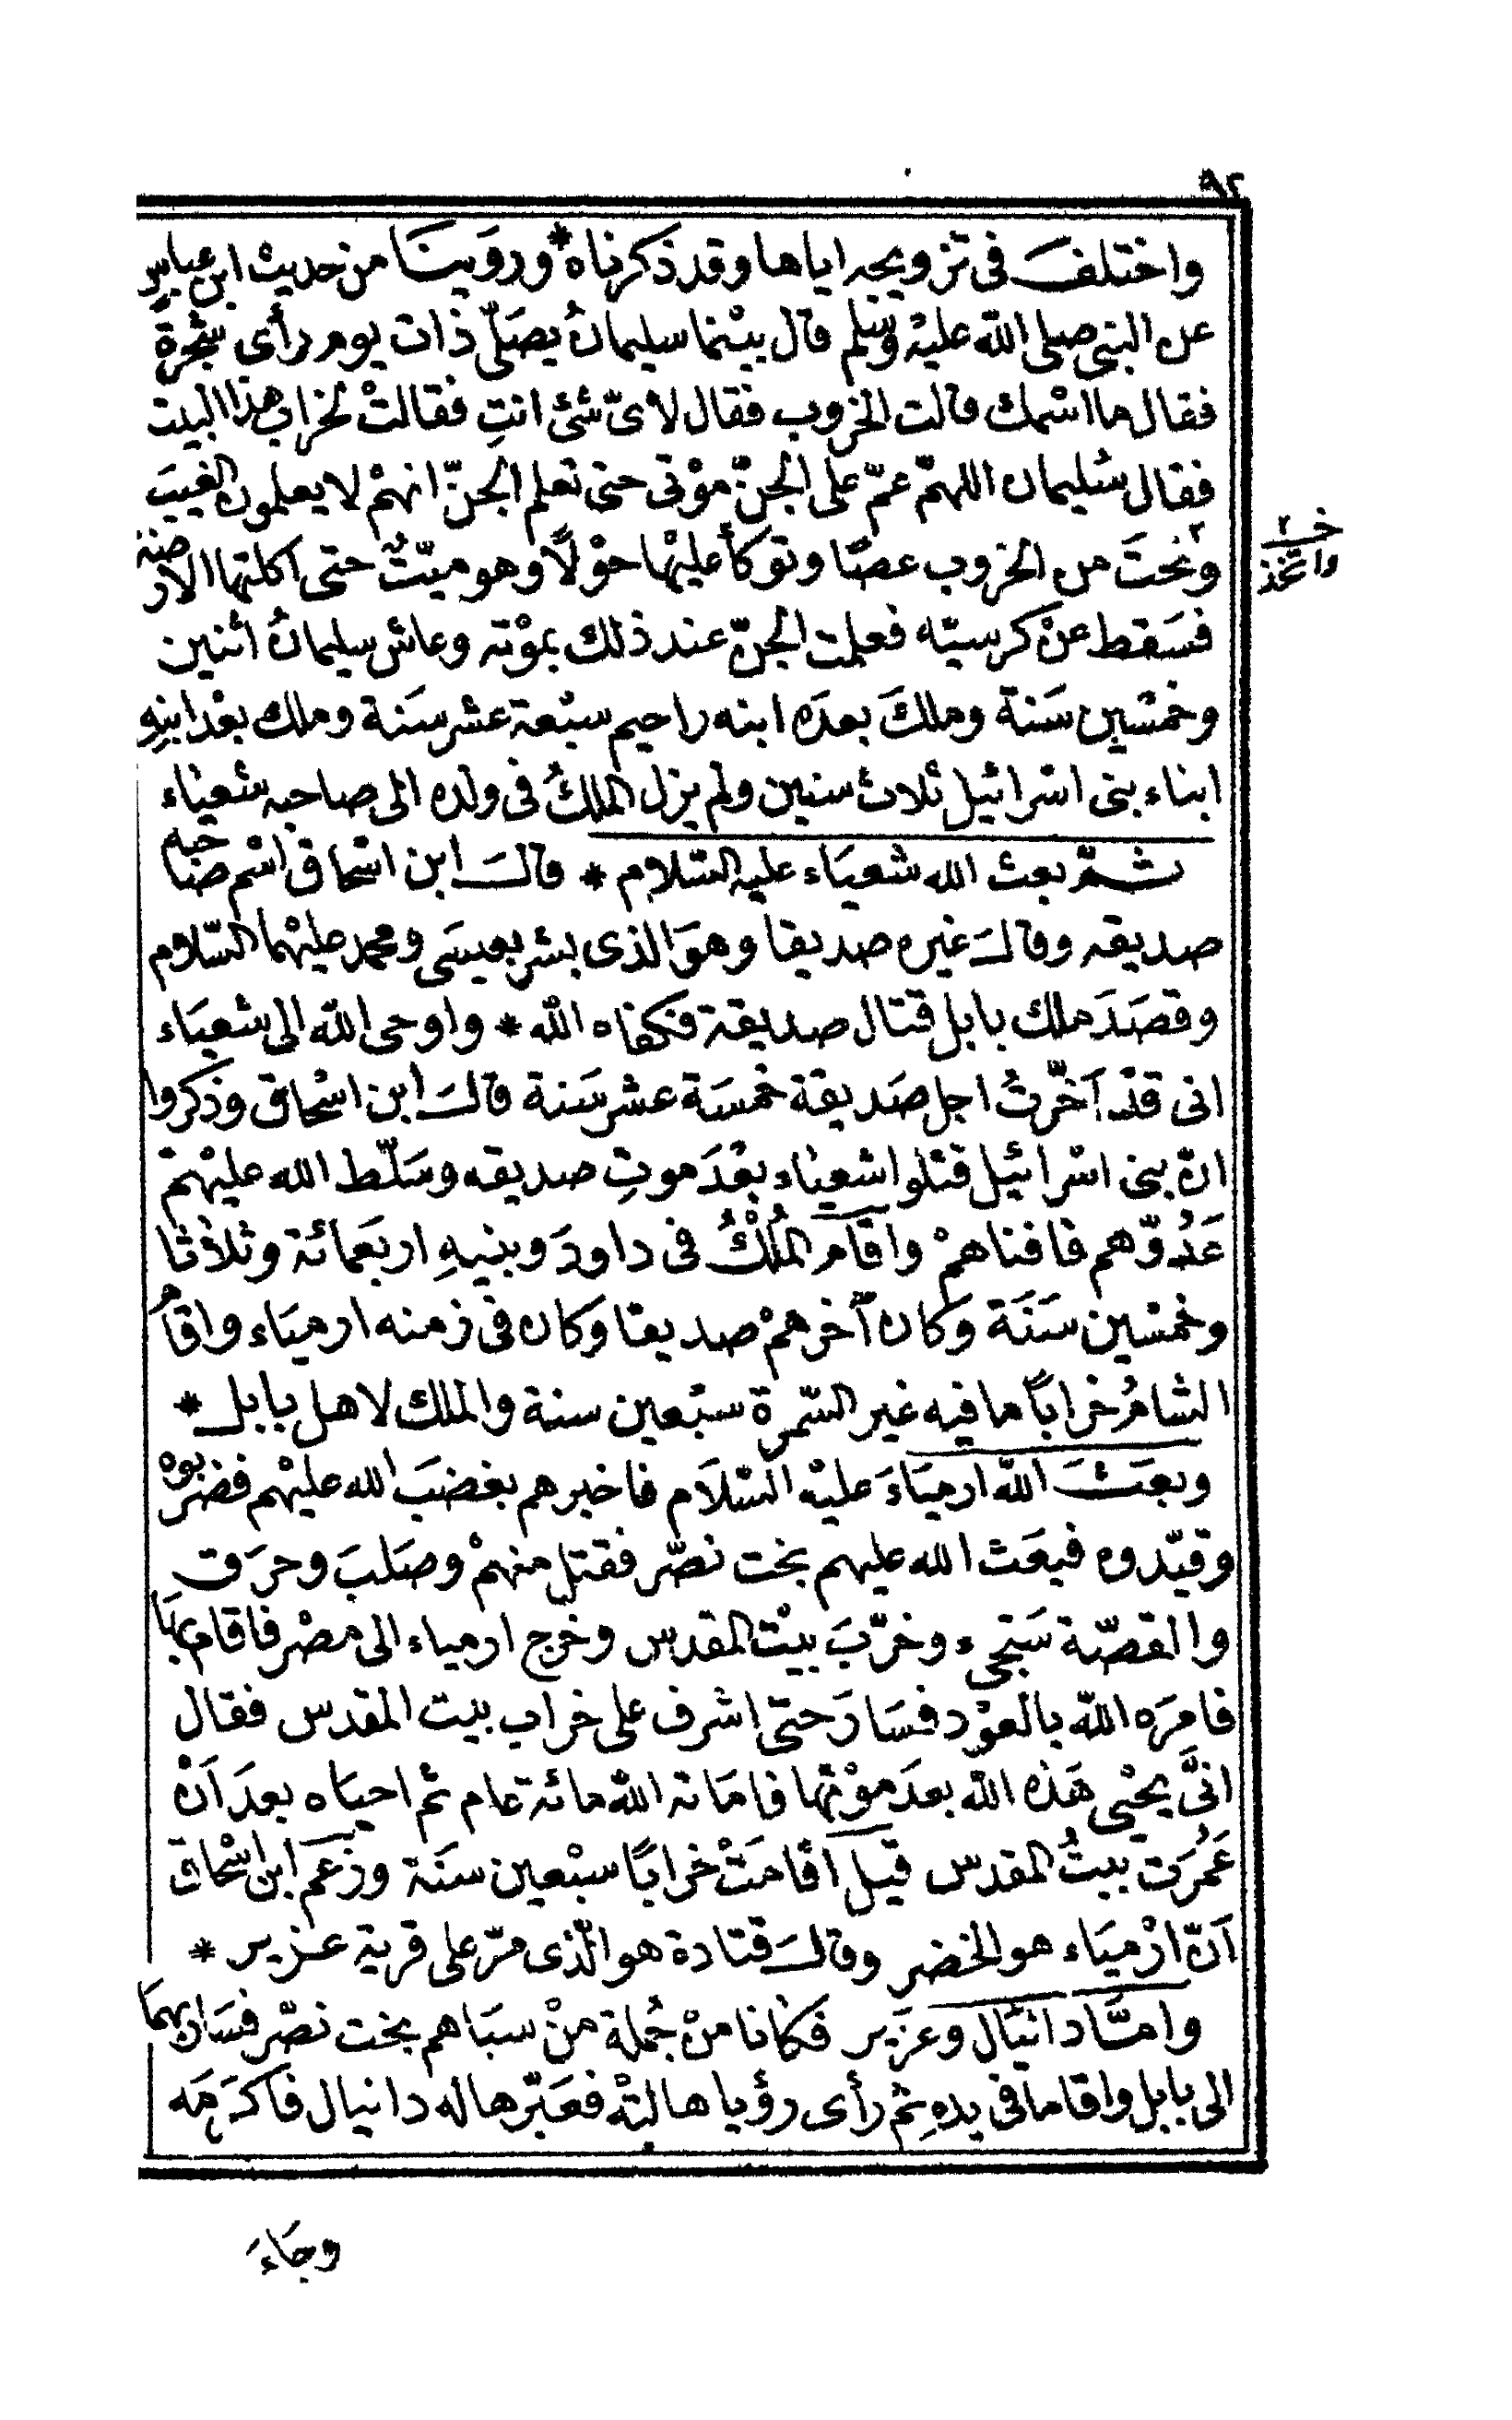 ٩٢
واختلف فى تزويجه اياها وقد ذكرناه * وروَينَا من حديث ابن عباسٍ
عن النبى صلى الله عليْه وسلم قال بيْنما سليمانُ يصَلّى ذات يوم رأى شجرة
فقال ما اسْمك قالت الخروب فقال لاىّ شئ انتِ فقالتْ لخراب هذا البيت
فقال سُليمان اللهمّ عمّ على الجنّ موْتى حتى تعلم الجنّ انهمْ لا يعلمون الغيبَ
ونحتَ من الخروب عصًا وتوكأ عليْها حوْلًا وهو ميّتٌ حتى اكلتها الارضة
خـ ٢ واتخذ
فسَقط عنْ كرسيّه فعلمت الجنّ عند ذلك بموْته وعاش سليمانُ اثنين
وخمسْين سَنة وملكَ بعدَه ابنه راحيم سبْعة عشر سَنة وملك بعْد ابنهِ
ابناء بنى اسْرائيل ثلاث سنين ولم يزل الملكُ فى ولده الى صاحبه شعياء
ثـمّ بعث الله شعيَاء عليه السّلام * قالَ ابن اسْحاق اسْم صَاحبه
صديقه وقالَ غيره صديقا وهوَ الذى بشر بعيسَى ومحمد عليْهما السّلام
وقصَدَ ملك بابل قتال صديقة فكفاه الله * واوحى الله الى شعيَاء
انى قدْ اَخّرتُ اجل صَديقة خمسَة عشر سَنة قالَ ابن اسْحاق وذكروا
انّ بنى اسْرائيل قتلوا شعياء بعْدَ موتِ صديقه وسَلّط الله عليْهمْ
عَدُوّهم فافناهمْ واقامَ المُلْكُ فى داودَ وبنيهِ اربعَمائة وثلاثا
وخمسْين سَنَة وَكان آخرهمْ صديقا وَكان فى زمنه ارميَاء واقامَ
الشامُ خراباً ما فيه غير السّمرة سبْعين سنة والملك لاهل بابل *
وبعَثَ اللهُ ارميَاءَ عليْه السّلاَم فاخبرهم بغضبَ الله عليْهم فضربوه
وقيّدوه فبعَث الله عليهم بخت نصّر فقتل منهمْ وصَلبَ وحرَق
والقصّة سَتجىء وخرّبَ بيْت المقدس وخرج ارمياء الى مصْر فاقام بهَا
فامرَه الله بالعوْد فسَارَ حتى اشرف على خراب بيت المقدس فقال
انىَّ يحْيى هَذه اللهُ بعدَ موْتها فامَاته اللهُ مائة عام ثم احيَاه بعدَ اَنْ
عَمُرَت بيتُ المقدس قيل اقامَتْ خراباً سبْعين سنَة وزعَم ابن اسْحاق
اَنّ ارْميَاء هو الخضر وقالَ قتادة هو الّذى مرّ على قرية عزير *
وامّا دانيَال وعزَير فكانا منْ جُملة منْ سبَاهم بخت نصّر فسَار بهمَا
الى بابل واقاما فى يدهِ ثم رأى رؤيا هالتْه فعَبّرها له دانيال فاكرَمَه
وجَاءَ